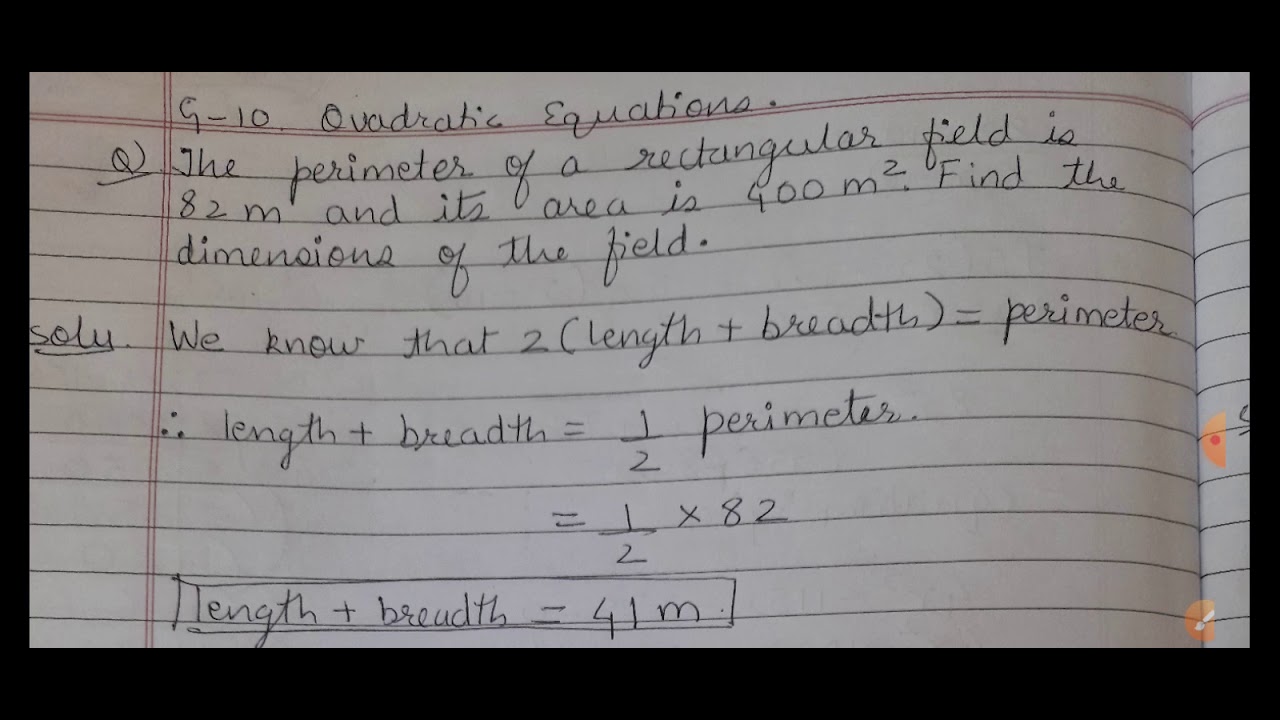 G-10. Quadratic Equations.
Q) The perimeter of a rectangular field is
82 m and its area is 400 m². Find the
dimensions of the field.
Solu. We know that 2 (length + breadth) = perimeter.
∴ length + breadth = 1/2 perimeter.
= 1/2 × 82
length + breadth = 41 m.